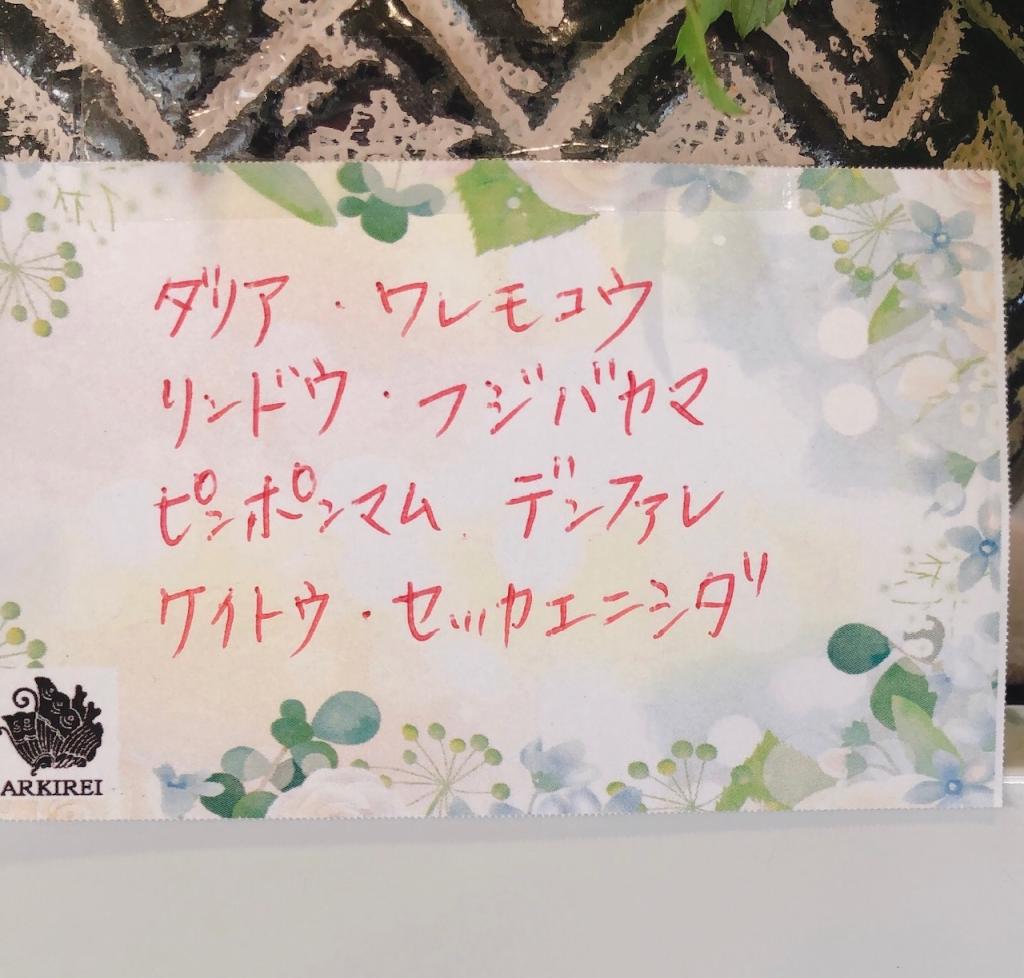 ダリア・ワレモコウ
リンドウ・フジバカマ
ピンポンマム.デンファレ
ケイトウ・セッカエニシダ
ARKIREI